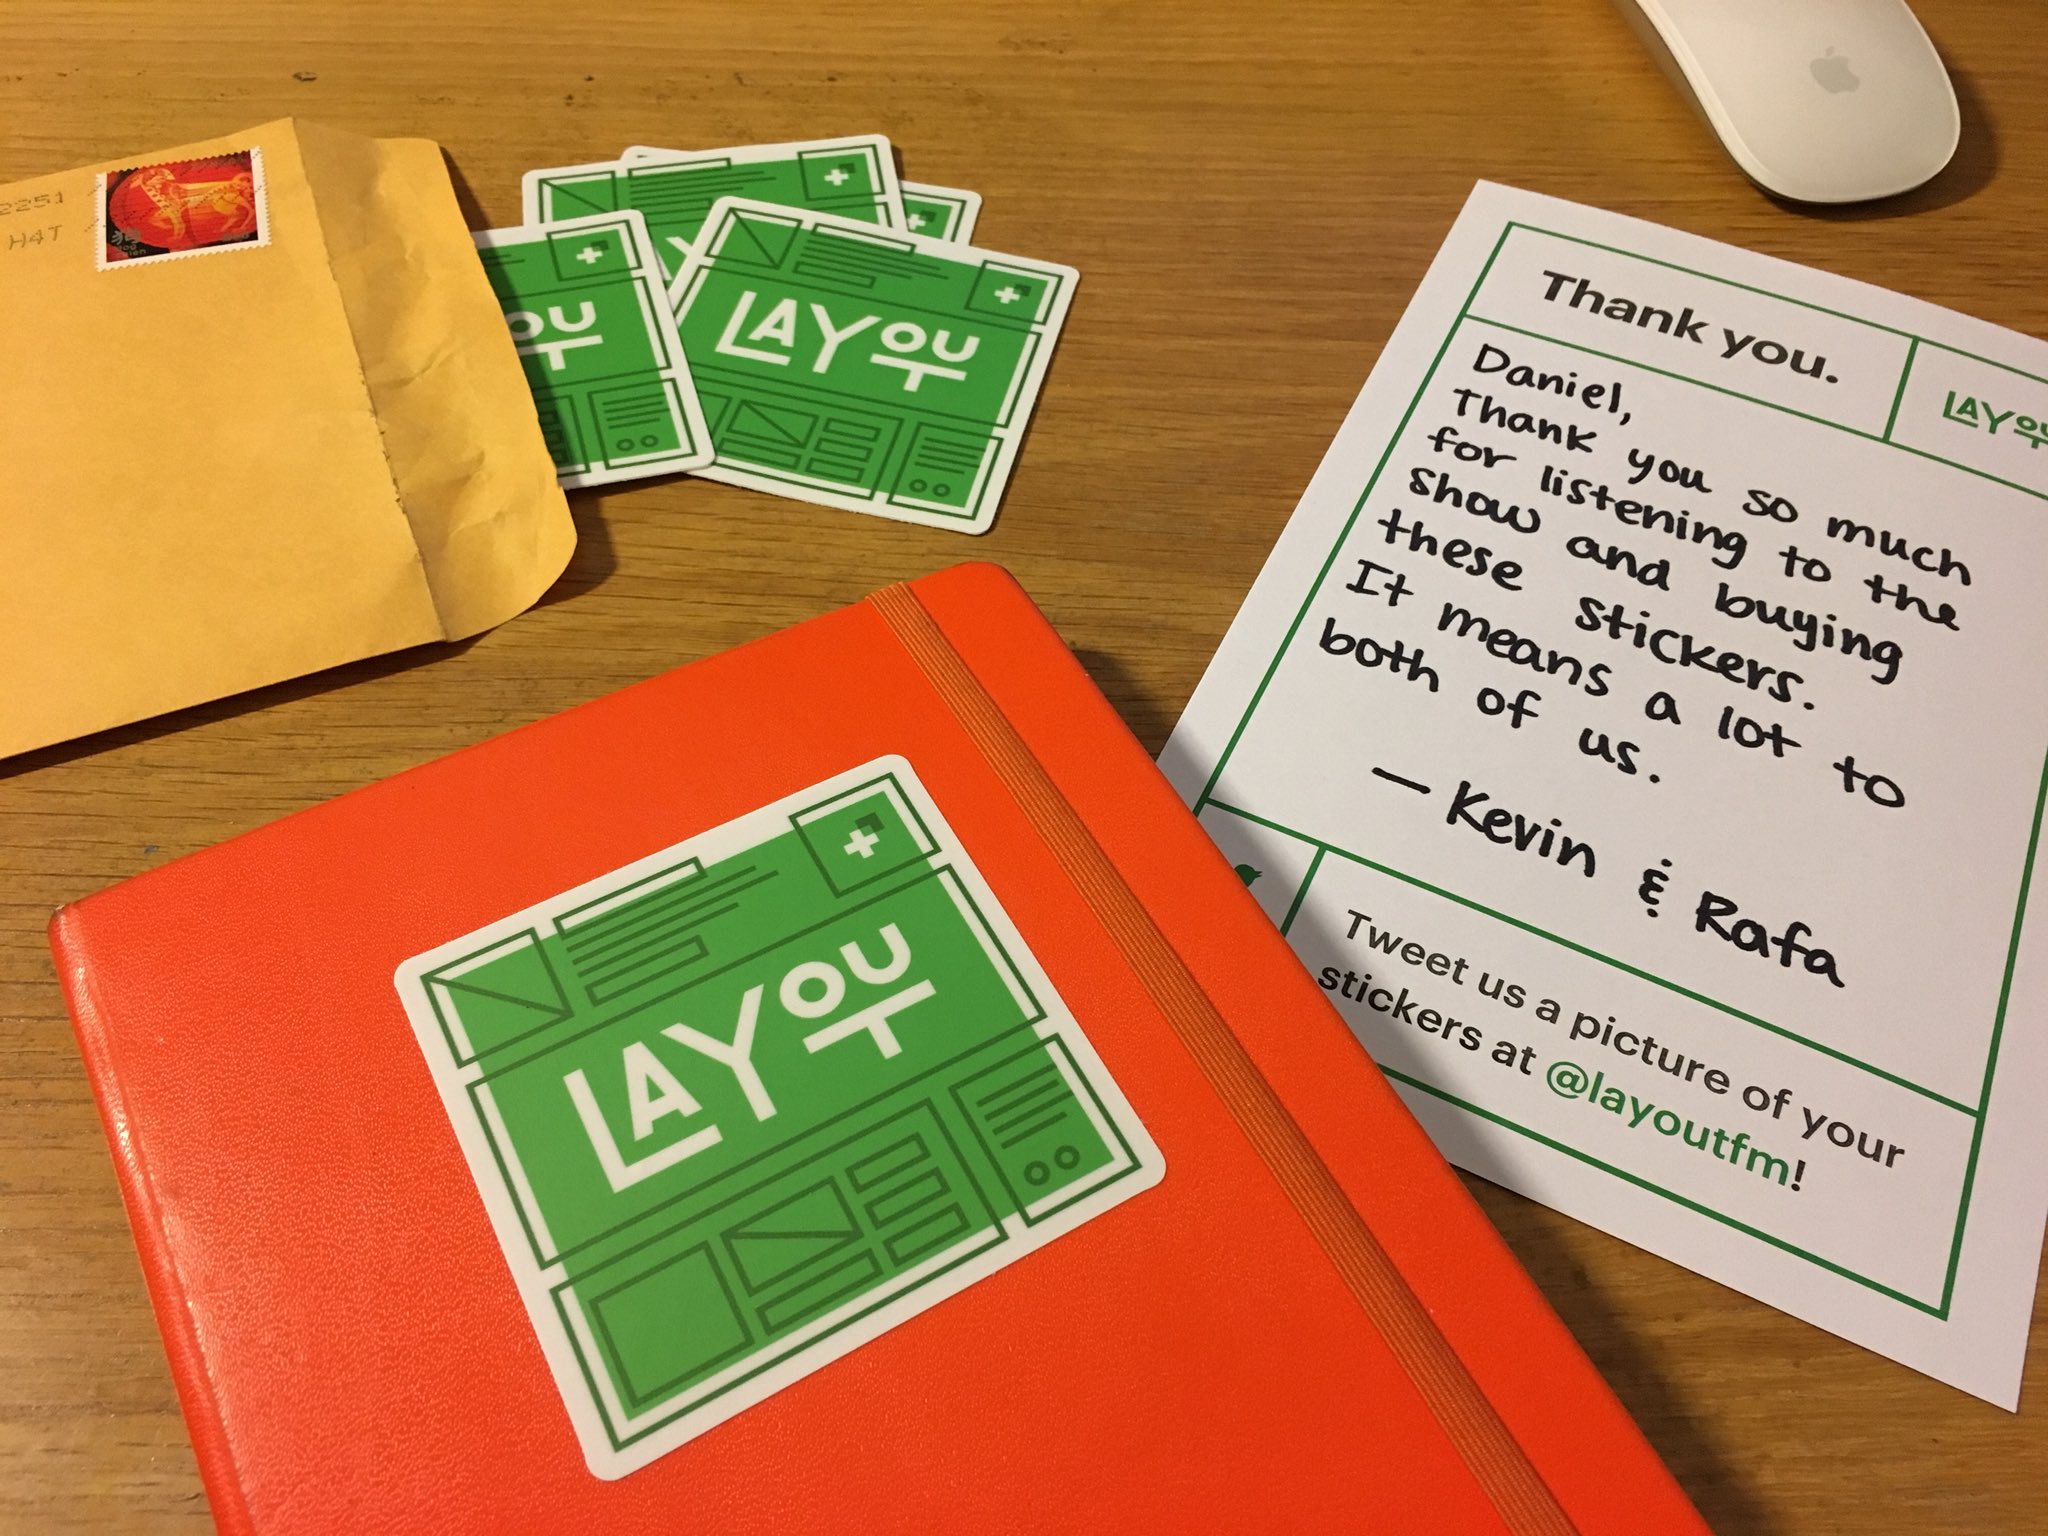 2251
H4T
LAYOUT
LAYOUT
Thank you.
Daniel,
Thank you so much
for listening to the
show and buying
these stickers.
It means a lot to
both of us.
— Kevin & Rafa
Tweet us a picture of your
stickers at @layoutfm!